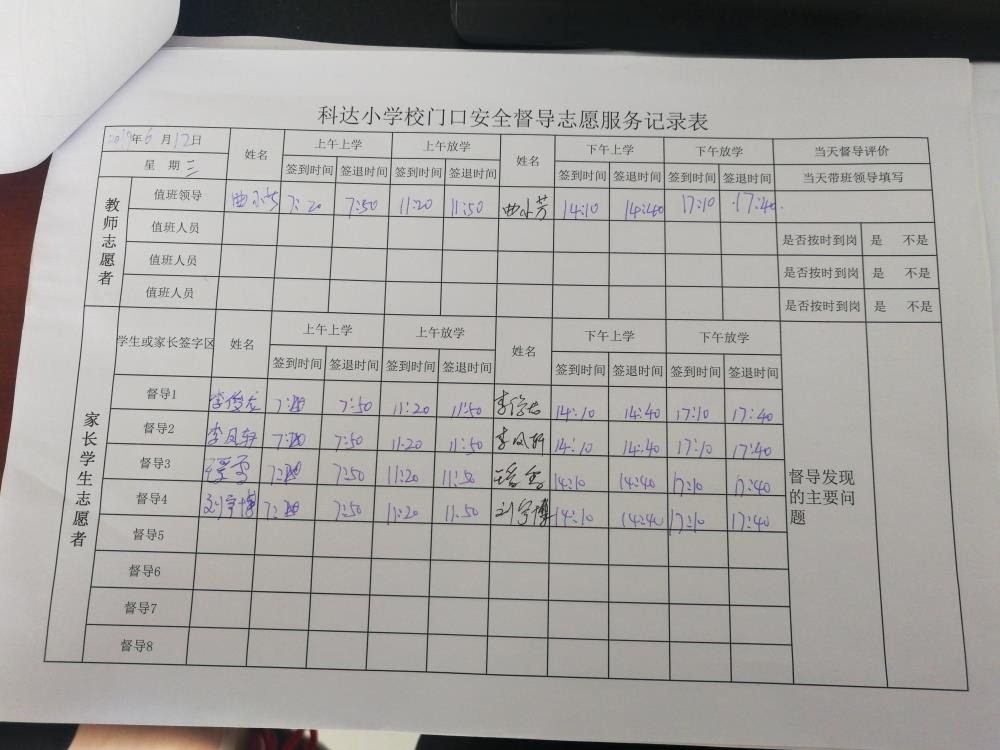 科达小学校门口安全督导志愿服务记录表
2019年6月12日 姓名 上午上学 上午放学 姓名 下午上学 下午放学 当天督导评价
星期三 签到时间 签退时间 签到时间 签退时间 签到时间 签退时间 签到时间 签退时间 当天带班领导填写
教师志愿者
值班领导 曲小芳 7:20 7:50 11:20 11:50 曲小芳 14:10 14:40 17:10 17:40
值班人员 是否按时到岗 是 不是
值班人员 是否按时到岗 是 不是
值班人员 是否按时到岗 是 不是
家长学生志愿者
学生或家长签字区 姓名 上午上学 上午放学 姓名 下午上学 下午放学
签到时间 签退时间 签到时间 签退时间 签到时间 签退时间 签到时间 签退时间
督导1 李俊龙 7:20 7:50 11:20 11:50 李俊龙 14:10 14:40 17:10 17:40
督导2 李凤轩 7:20 7:50 11:20 11:50 李凤轩 14:10 14:40 17:10 17:40
督导3 7:20 7:50 11:20 11:50 14:10 14:40 17:10 17:40
督导4 刘宇博 7:20 7:50 11:20 11:50 刘宇博 14:10 14:40 17:10 17:40
督导5
督导6
督导7
督导8
督导发现
的主要问
题